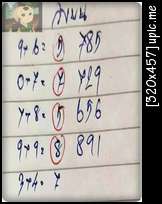 9+6= 5 785
0+7= 7 729
7+8= 5 656
9+9= 8 891
3+4= 7
[320x457] upic.me